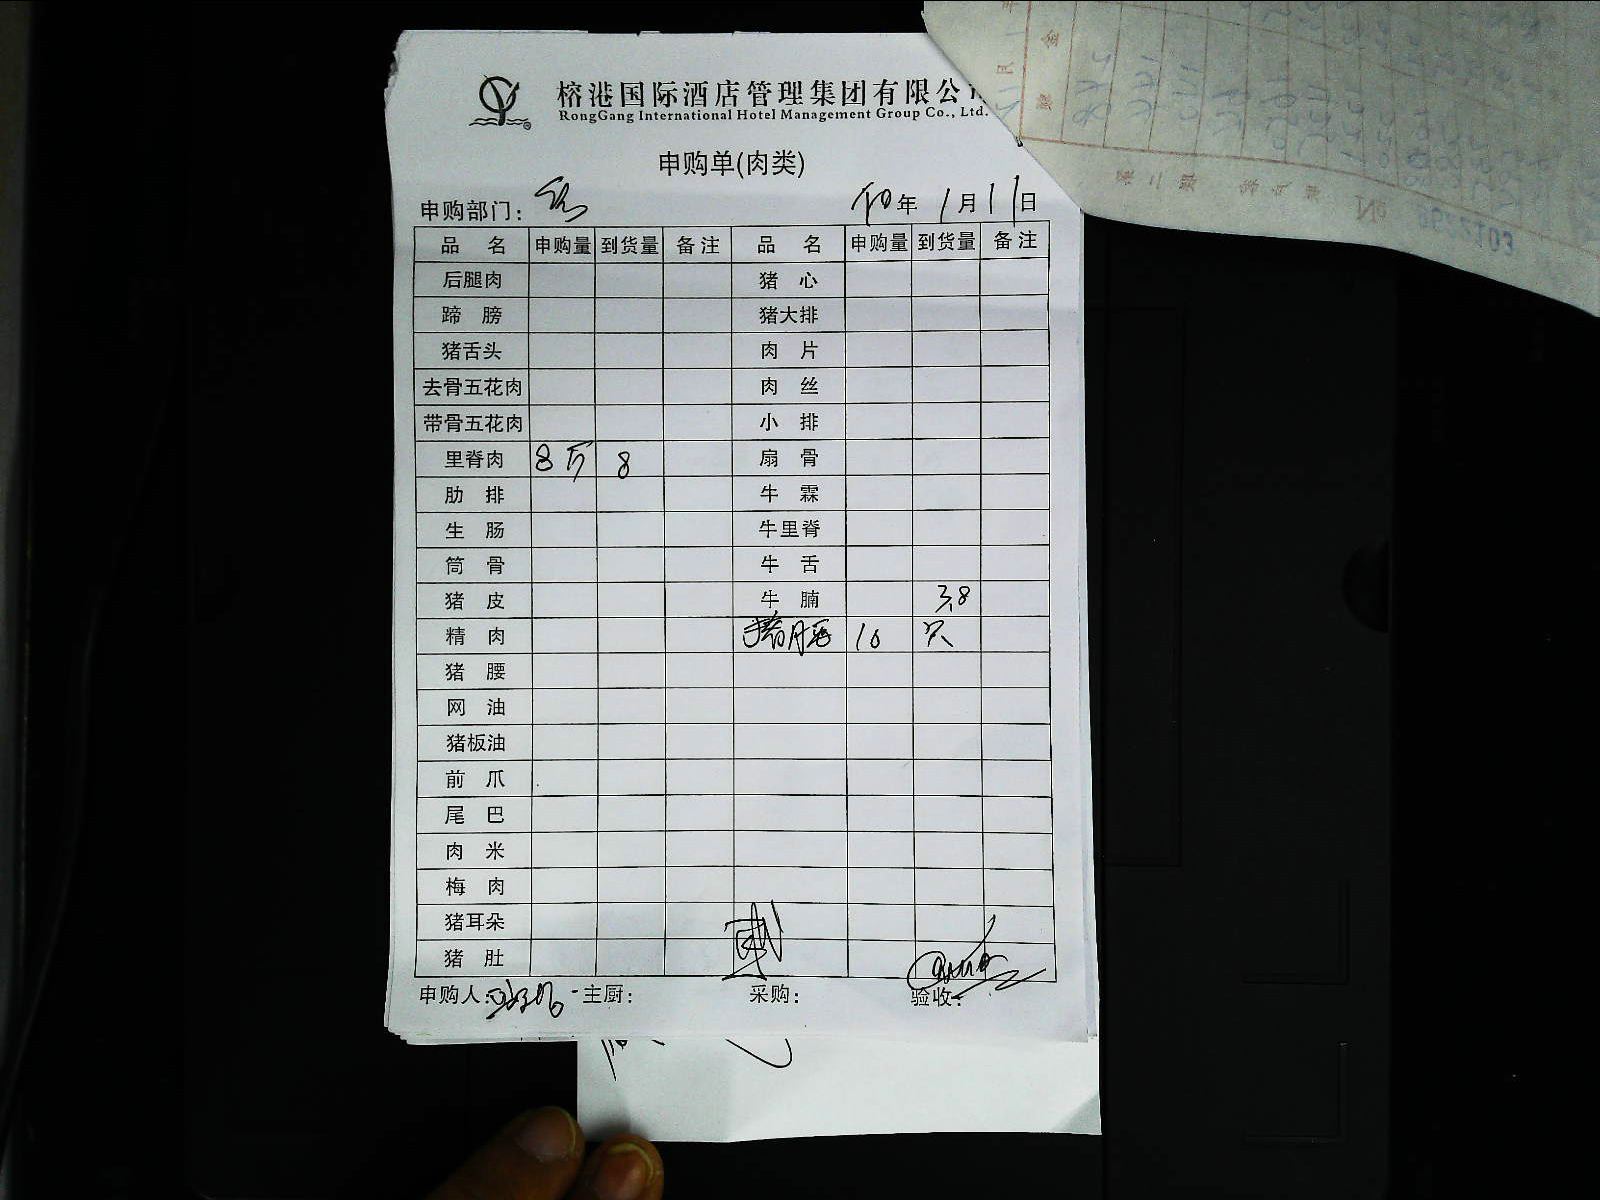 榕港国际酒店管理集团有限公
RongGang International Hotel Management Group Co., Ltd.
申购单(肉类)
申购部门: 年 1月11日
品 名 申购量 到货量 备注 品 名 申购量 到货量 备注
后腿肉 猪 心
蹄 膀 猪大排
猪舌头 肉 片
去骨五花肉 肉 丝
带骨五花肉 小 排
里脊肉 8斤 8 扇 骨
肋 排 牛 霖
生 肠 牛里脊
筒 骨 牛 舌
猪 皮 牛 腩 3.8
精 肉 10 只
猪 腰
网 油
猪板油
前 爪
尾 巴
肉 米
梅 肉
猪耳朵
猪 肚
申购人: 主厨: 采购: 验收: